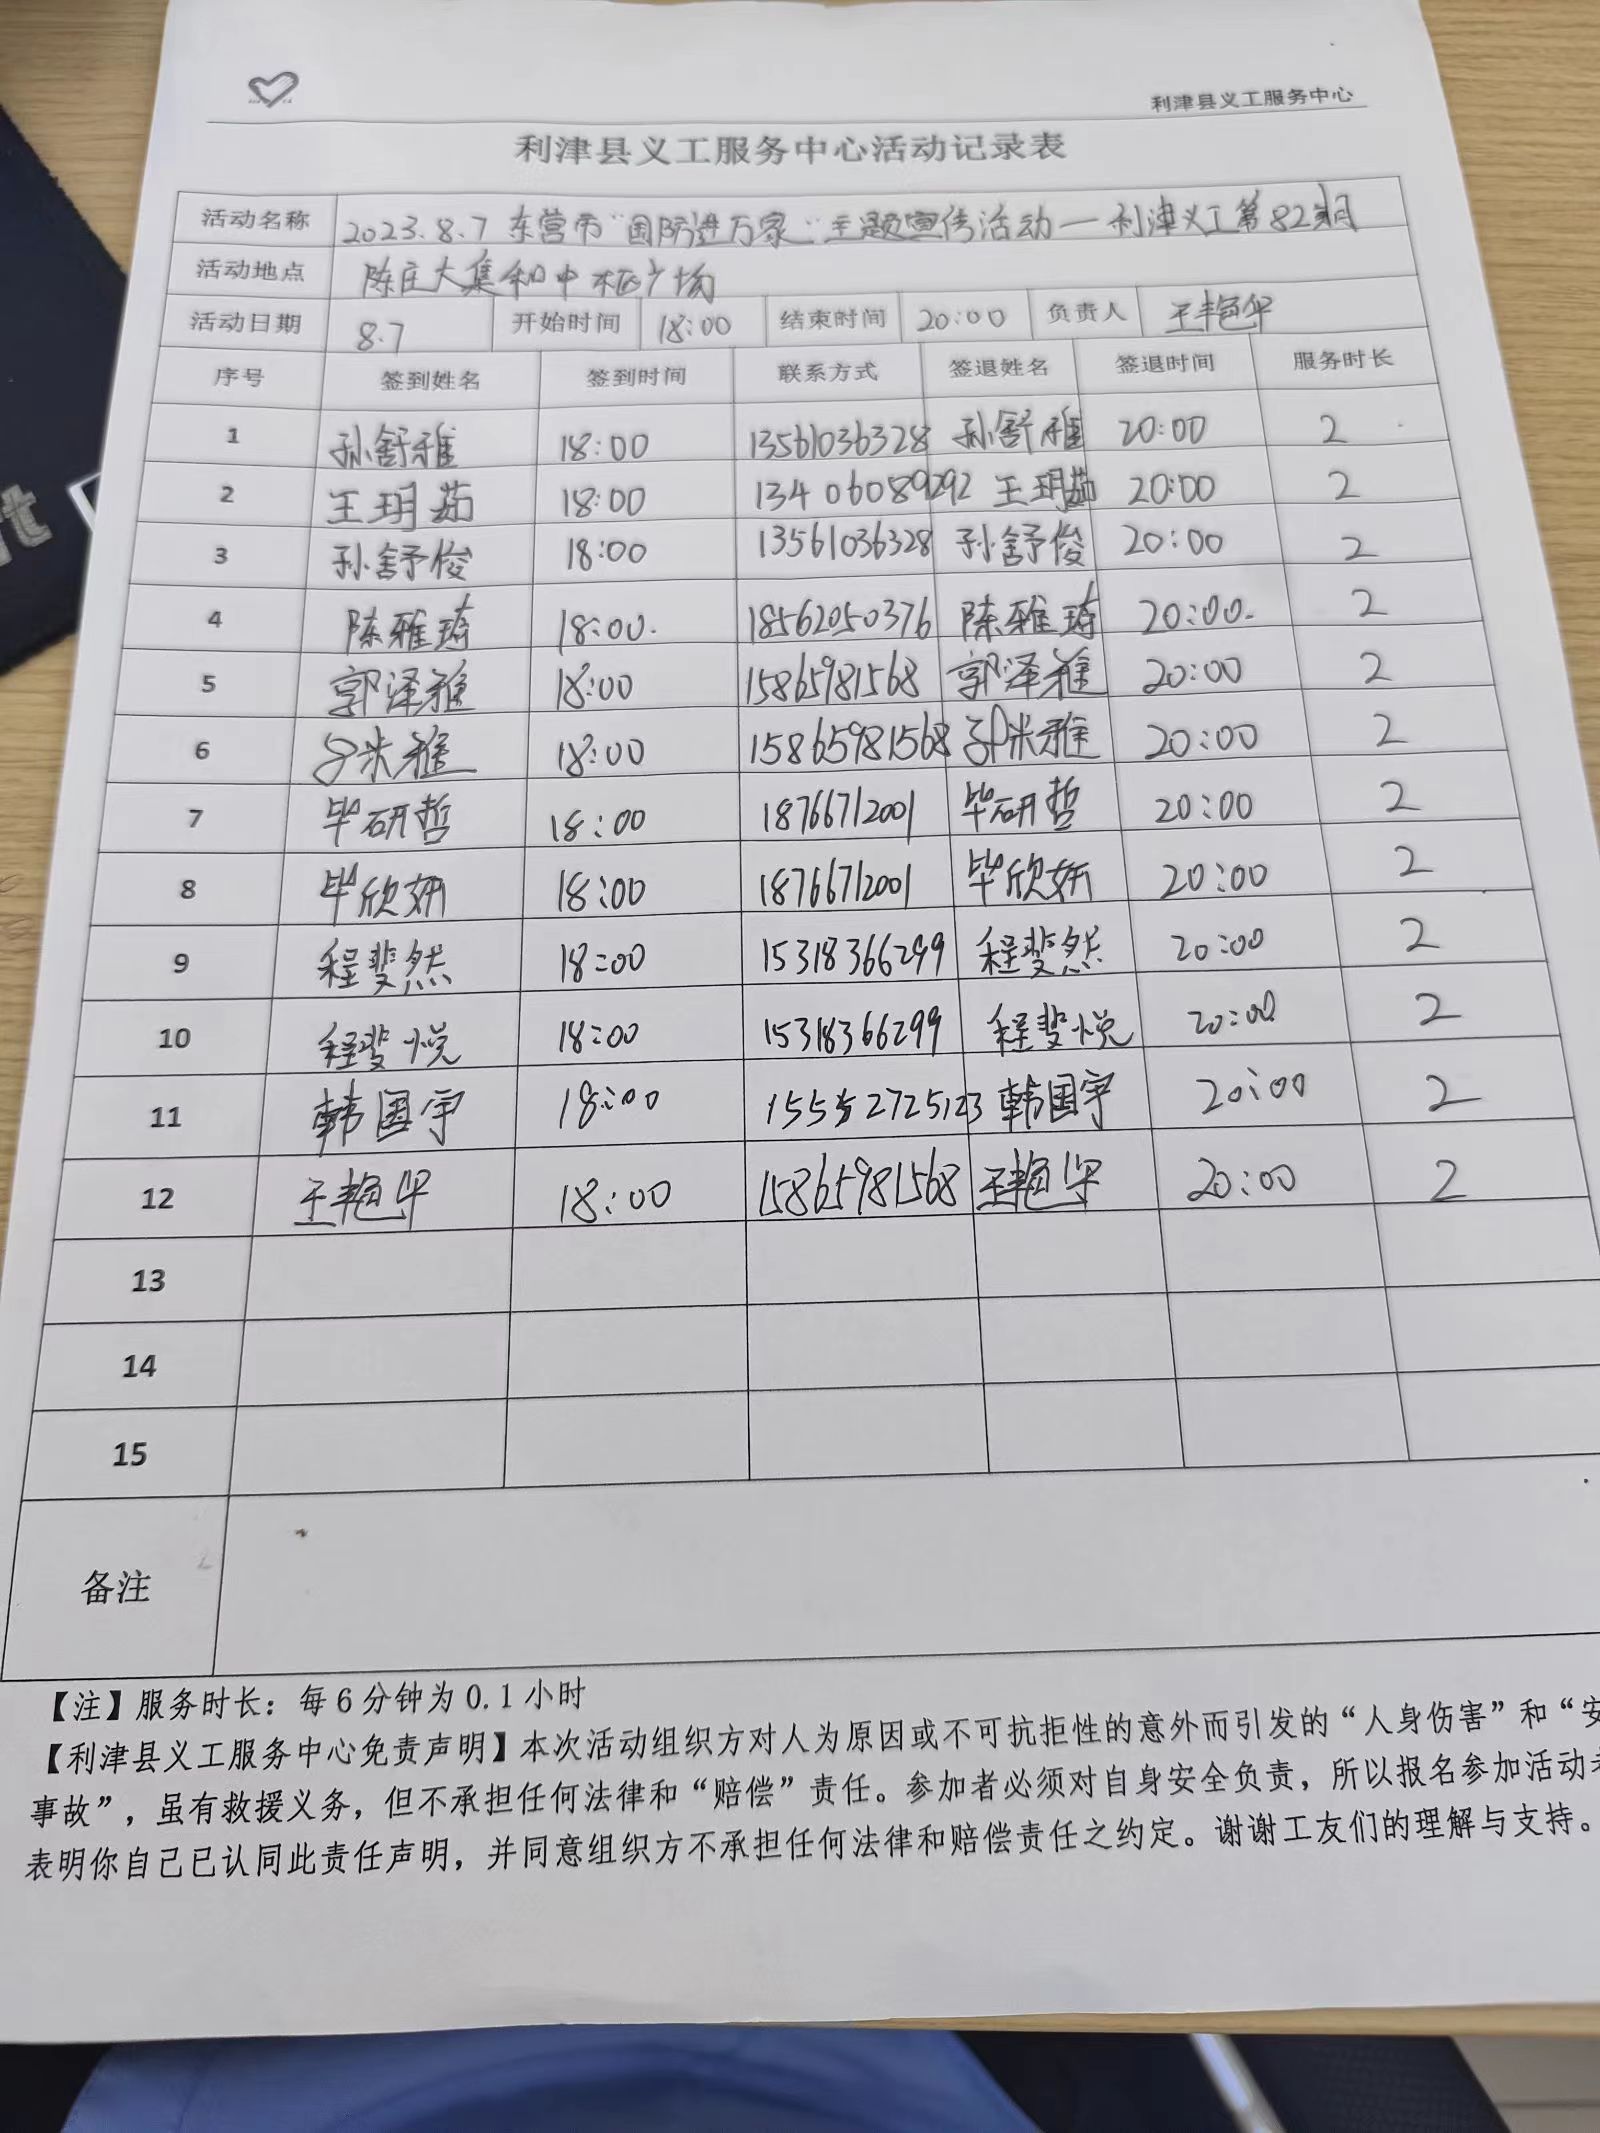 利津县义工服务中心
利津县义工服务中心活动记录表
活动名称 2023.8.7 东营市"国防进万家"主题宣传活动—利津义工第82期
活动地点 陈庄大集和中心广场
活动日期 8.7 开始时间 18:00 结束时间 20:00 负责人 王艳华
序号 签到姓名 签到时间 联系方式 签退姓名 签退时间 服务时长
1 孙舒雅 18:00 13561036328 孙舒雅 20:00 2
2 王玥茹 18:00 13406089292 王玥茹 20:00 2
3 孙舒俊 18:00 13561036328 孙舒俊 20:00 2
4 陈雅琦 18:00. 18562050376 陈雅琦 20:00. 2
5 郭泽雅 18:00 15865981568 郭泽雅 20:00 2
6 18:00 15865981568 20:00 2
7 毕研哲 18:00 18766712001 毕研哲 20:00 2
8 毕欣妍 18:00 18766712001 毕欣妍 20:00 2
9 程斐然 18:00 15318366299 程斐然 20:00 2
10 程斐悦 18:00 15318366299 程斐悦 20:00 2
11 韩国宇 18:00 韩国宇 20:00 2
12 王艳华 18:00 15865981568 王艳华 20:00 2
13
14
15
备注
【注】服务时长：每6分钟为0.1小时
【利津县义工服务中心免责声明】本次活动组织方对人为原因或不可抗拒性的意外而引发的“人身伤害”和“安
事故”，虽有救援义务，但不承担任何法律和“赔偿”责任。参加者必须对自身安全负责，所以报名参加活动者
表明你自己已认同此责任声明，并同意组织方不承担任何法律和赔偿责任之约定。谢谢工友们的理解与支持。